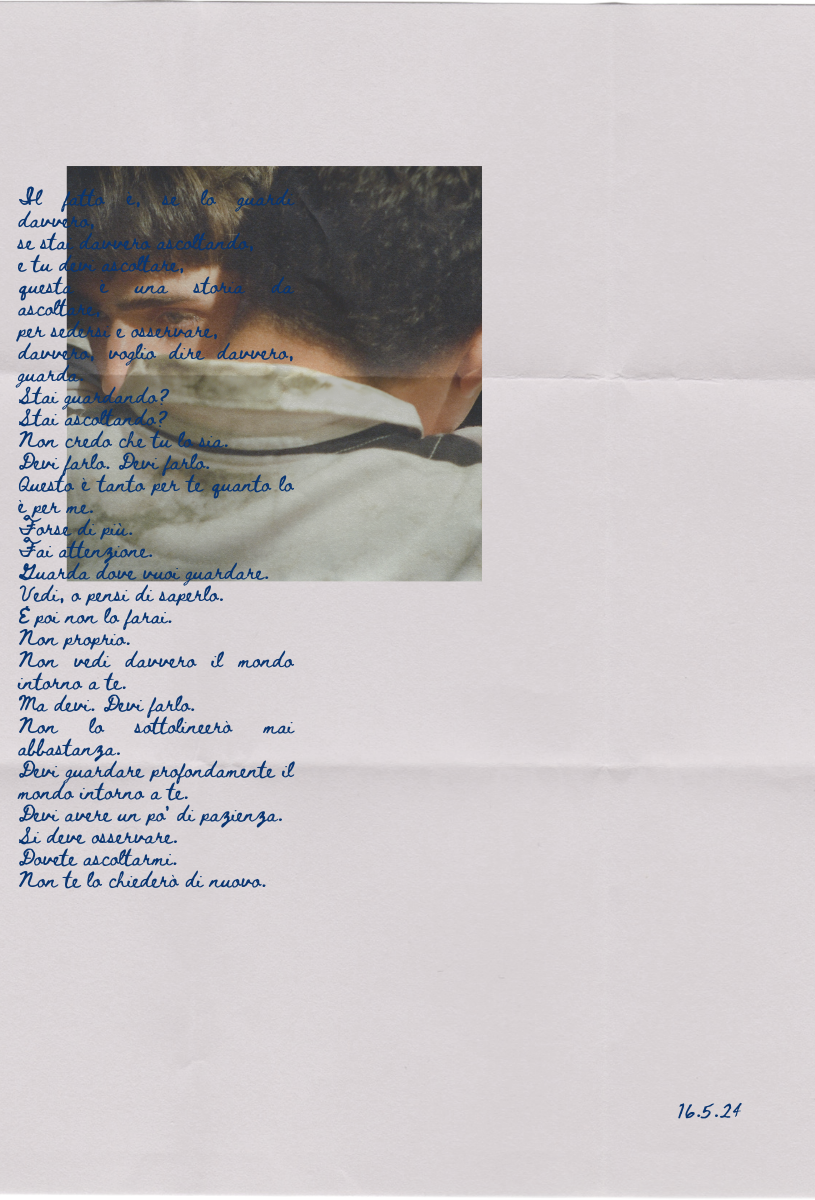 Il fatto è, se lo guardi
davvero,
se stai davvero ascoltando,
e tu devi ascoltare,
questa è una storia da
ascoltare,
per sedersi e osservare,
davvero, voglio dire davvero,
guarda.
Stai guardando?
Stai ascoltando?
Non credo che tu lo sia.
Devi farlo. Devi farlo.
Questo è tanto per te quanto lo
è per me.
Forse di più.
Fai attenzione.
Guarda dove vuoi guardare.
Vedi, o pensi di saperlo.
E poi non lo farai.
Non proprio.
Non vedi davvero il mondo
intorno a te.
Ma devi. Devi farlo.
Non lo sottolineerò mai
abbastanza.
Devi guardare profondamente il
mondo intorno a te.
Devi avere un po' di pazienza.
Si deve osservare.
Dovete ascoltarmi.
Non te lo chiederò di nuovo.
16.5.24